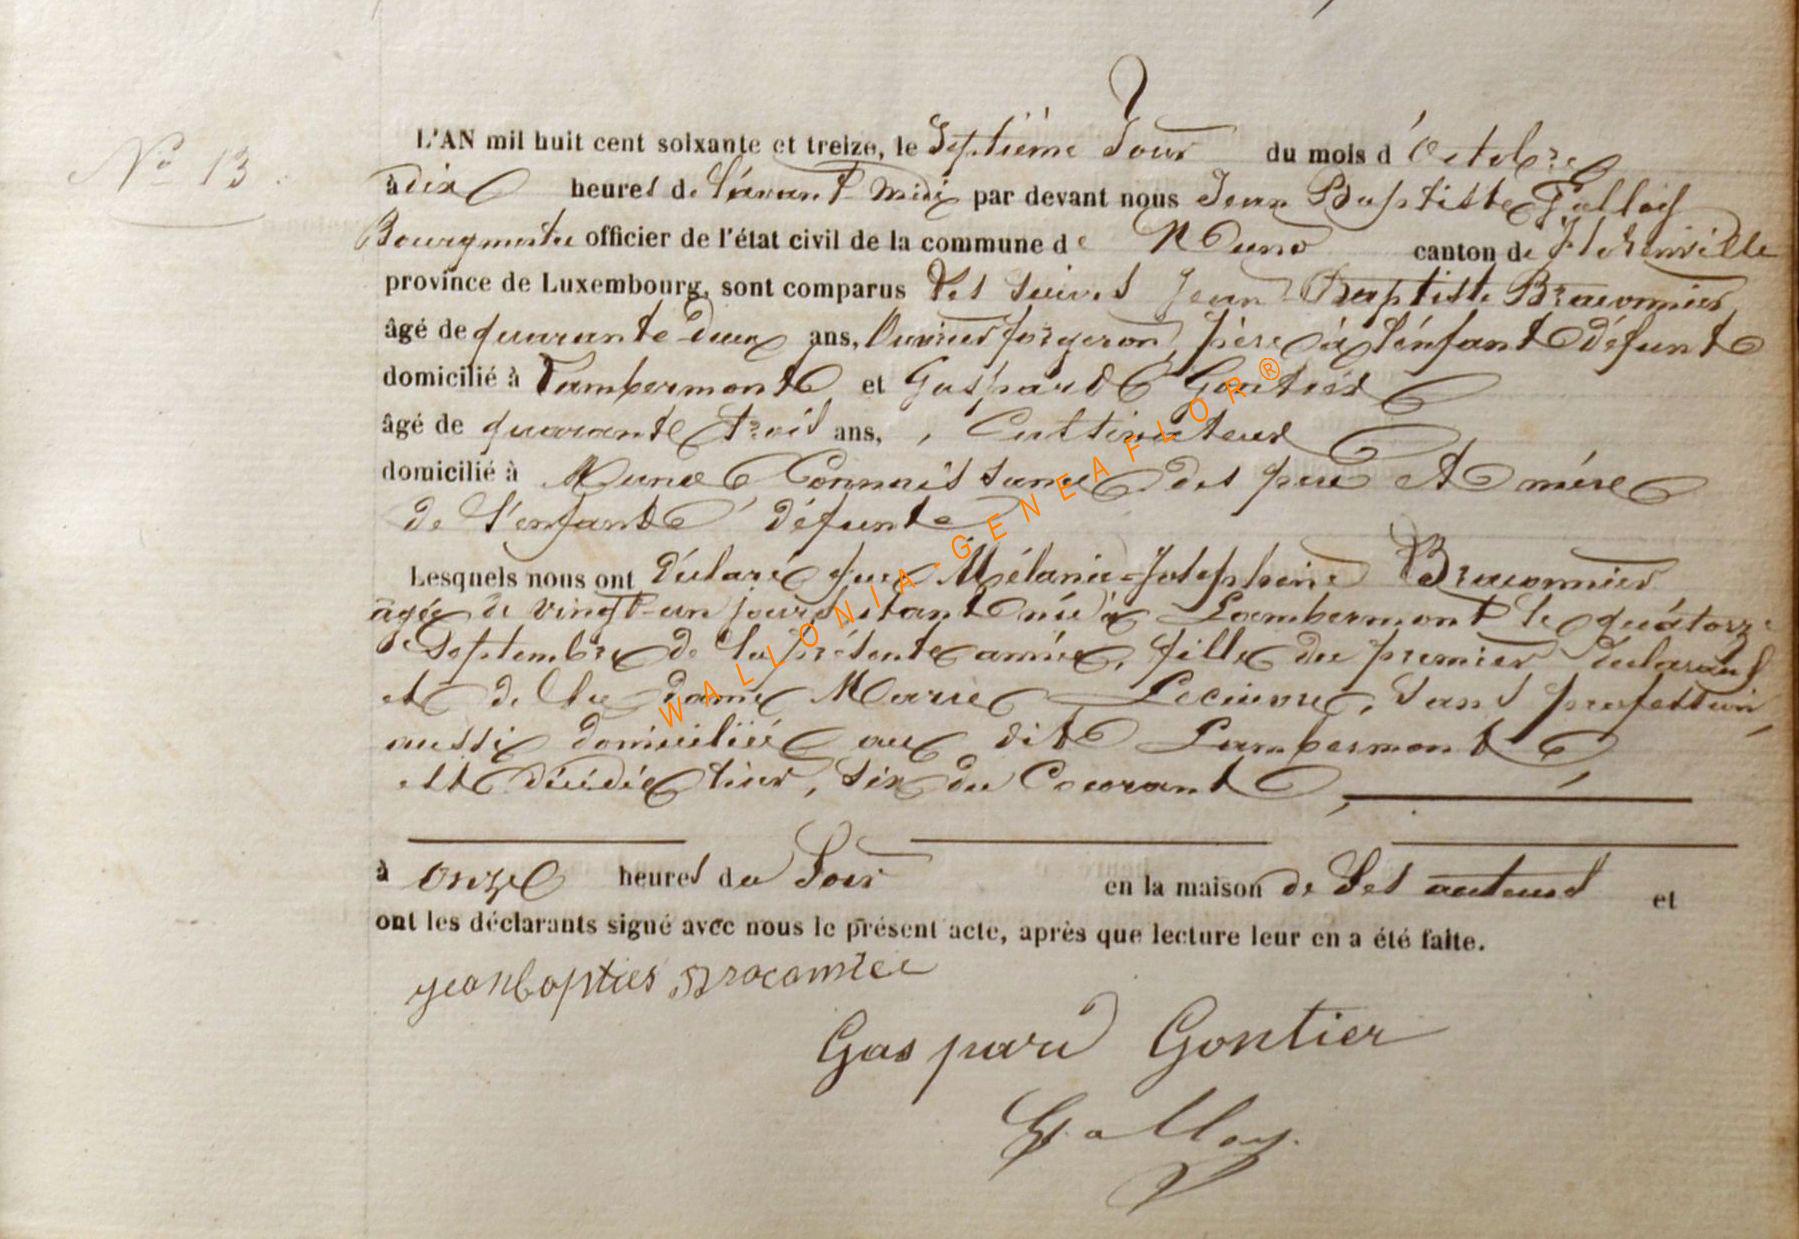 N° 13.
L'AN mil huit cent soixante et treize, le Septième Jour du mois d'Octobre
à dix heures de l'avant-midi par devant nous Jean Baptiste Galloy
Bourgmestre officier de l'état civil de la commune de Muno canton de Florenville
province de Luxembourg, sont comparus Jean-Baptiste Braconnier
âgé de quarante-deux ans, Ouvrier forgeron, père à l'énfant défunte
domicilié à Lambermont et Gaspard Gontier
âgé de quarante trois ans, , Cultivateur
domicilié à Muno Connaissance des père et mére
de l'enfant défunte
Lesquels nous ont déclaré que Mélanie-Joséphine Braconnier
agée de vingt-un jours étant née à Lambermont le quatorze
Septembre de la présente année, fille du premier déclarant
et de la dame Marie Lecuivre, sans profession,
aussi domiciliée au dit Lambermont
est décédée hier, six du Courant,
à onze heures du Soir en la maison de Ses auteurs et
ont les déclarants signé avec nous le présent acte, après que lecture leur en a été faite.
Gaspard Gontier
Galloy.
WALLONIA-GENEAFLOR®